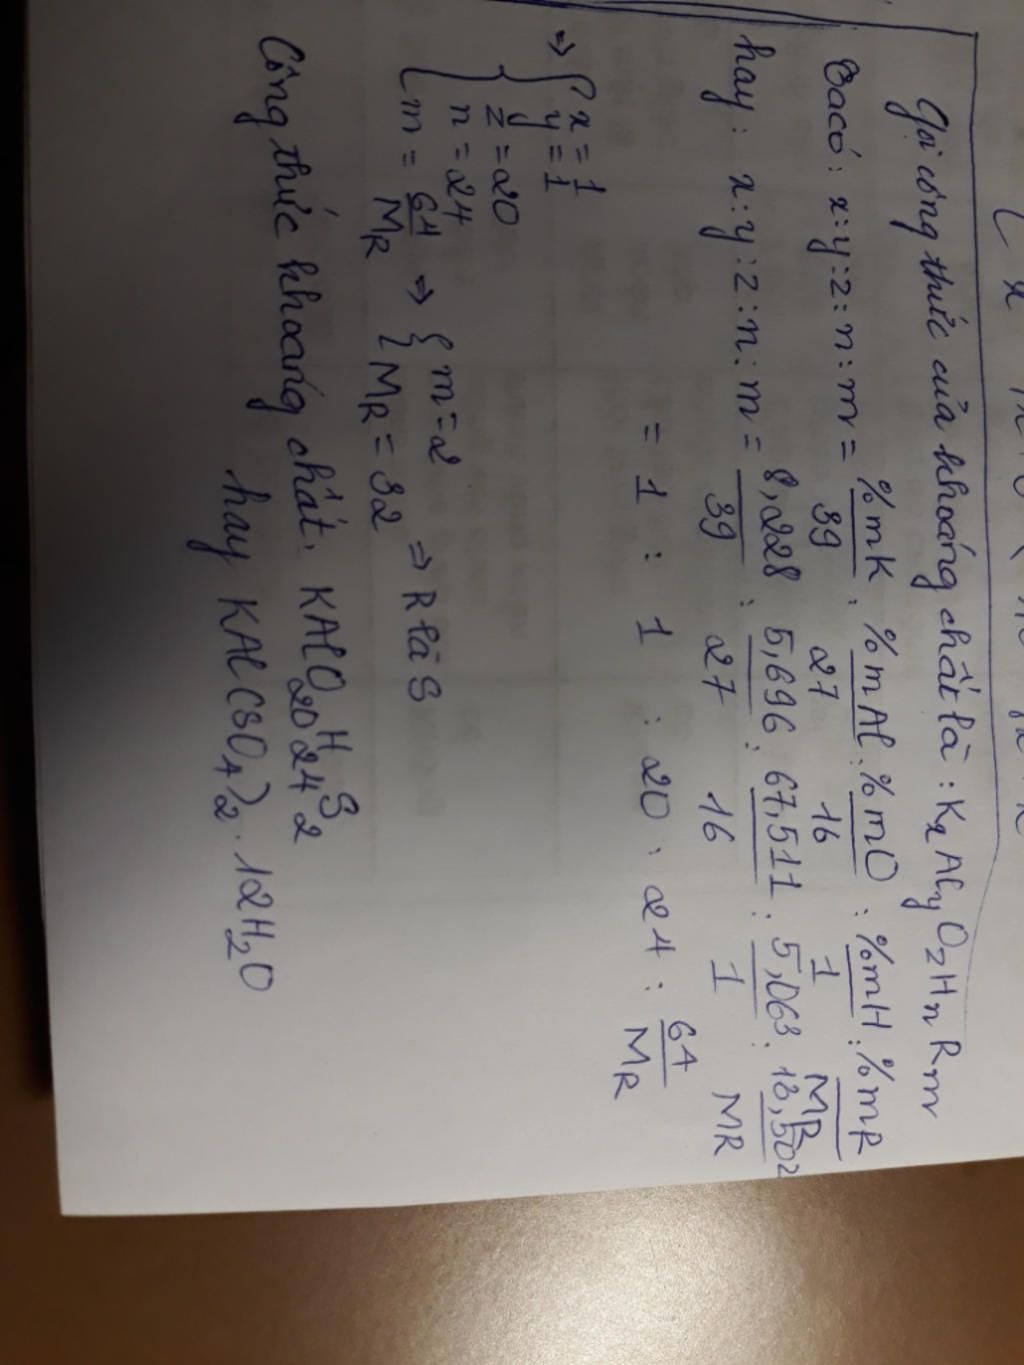 Gọi công thức của khoáng chất là : KxAlyOzHnRm
Ta có : x:y:z:n:m = %mK/39 : %mAl/27 : %mO/16 : %mH/1 : %mR/MR
hay : x:y:z:n:m = 8,228/39 : 5,696/27 : 67,511/16 : 5,063/1 : 13,502/MR
= 1 : 1 : 20 : 24 : 64/MR
⇒ { x = 1
y = 1
z = 20
n = 24
m = 64/MR ⇒ { m = 2
MR = 32 ⇒ R là S
Công thức khoáng chất : KAlO20H24S2
hay KAl(SO4)2 . 12H2O